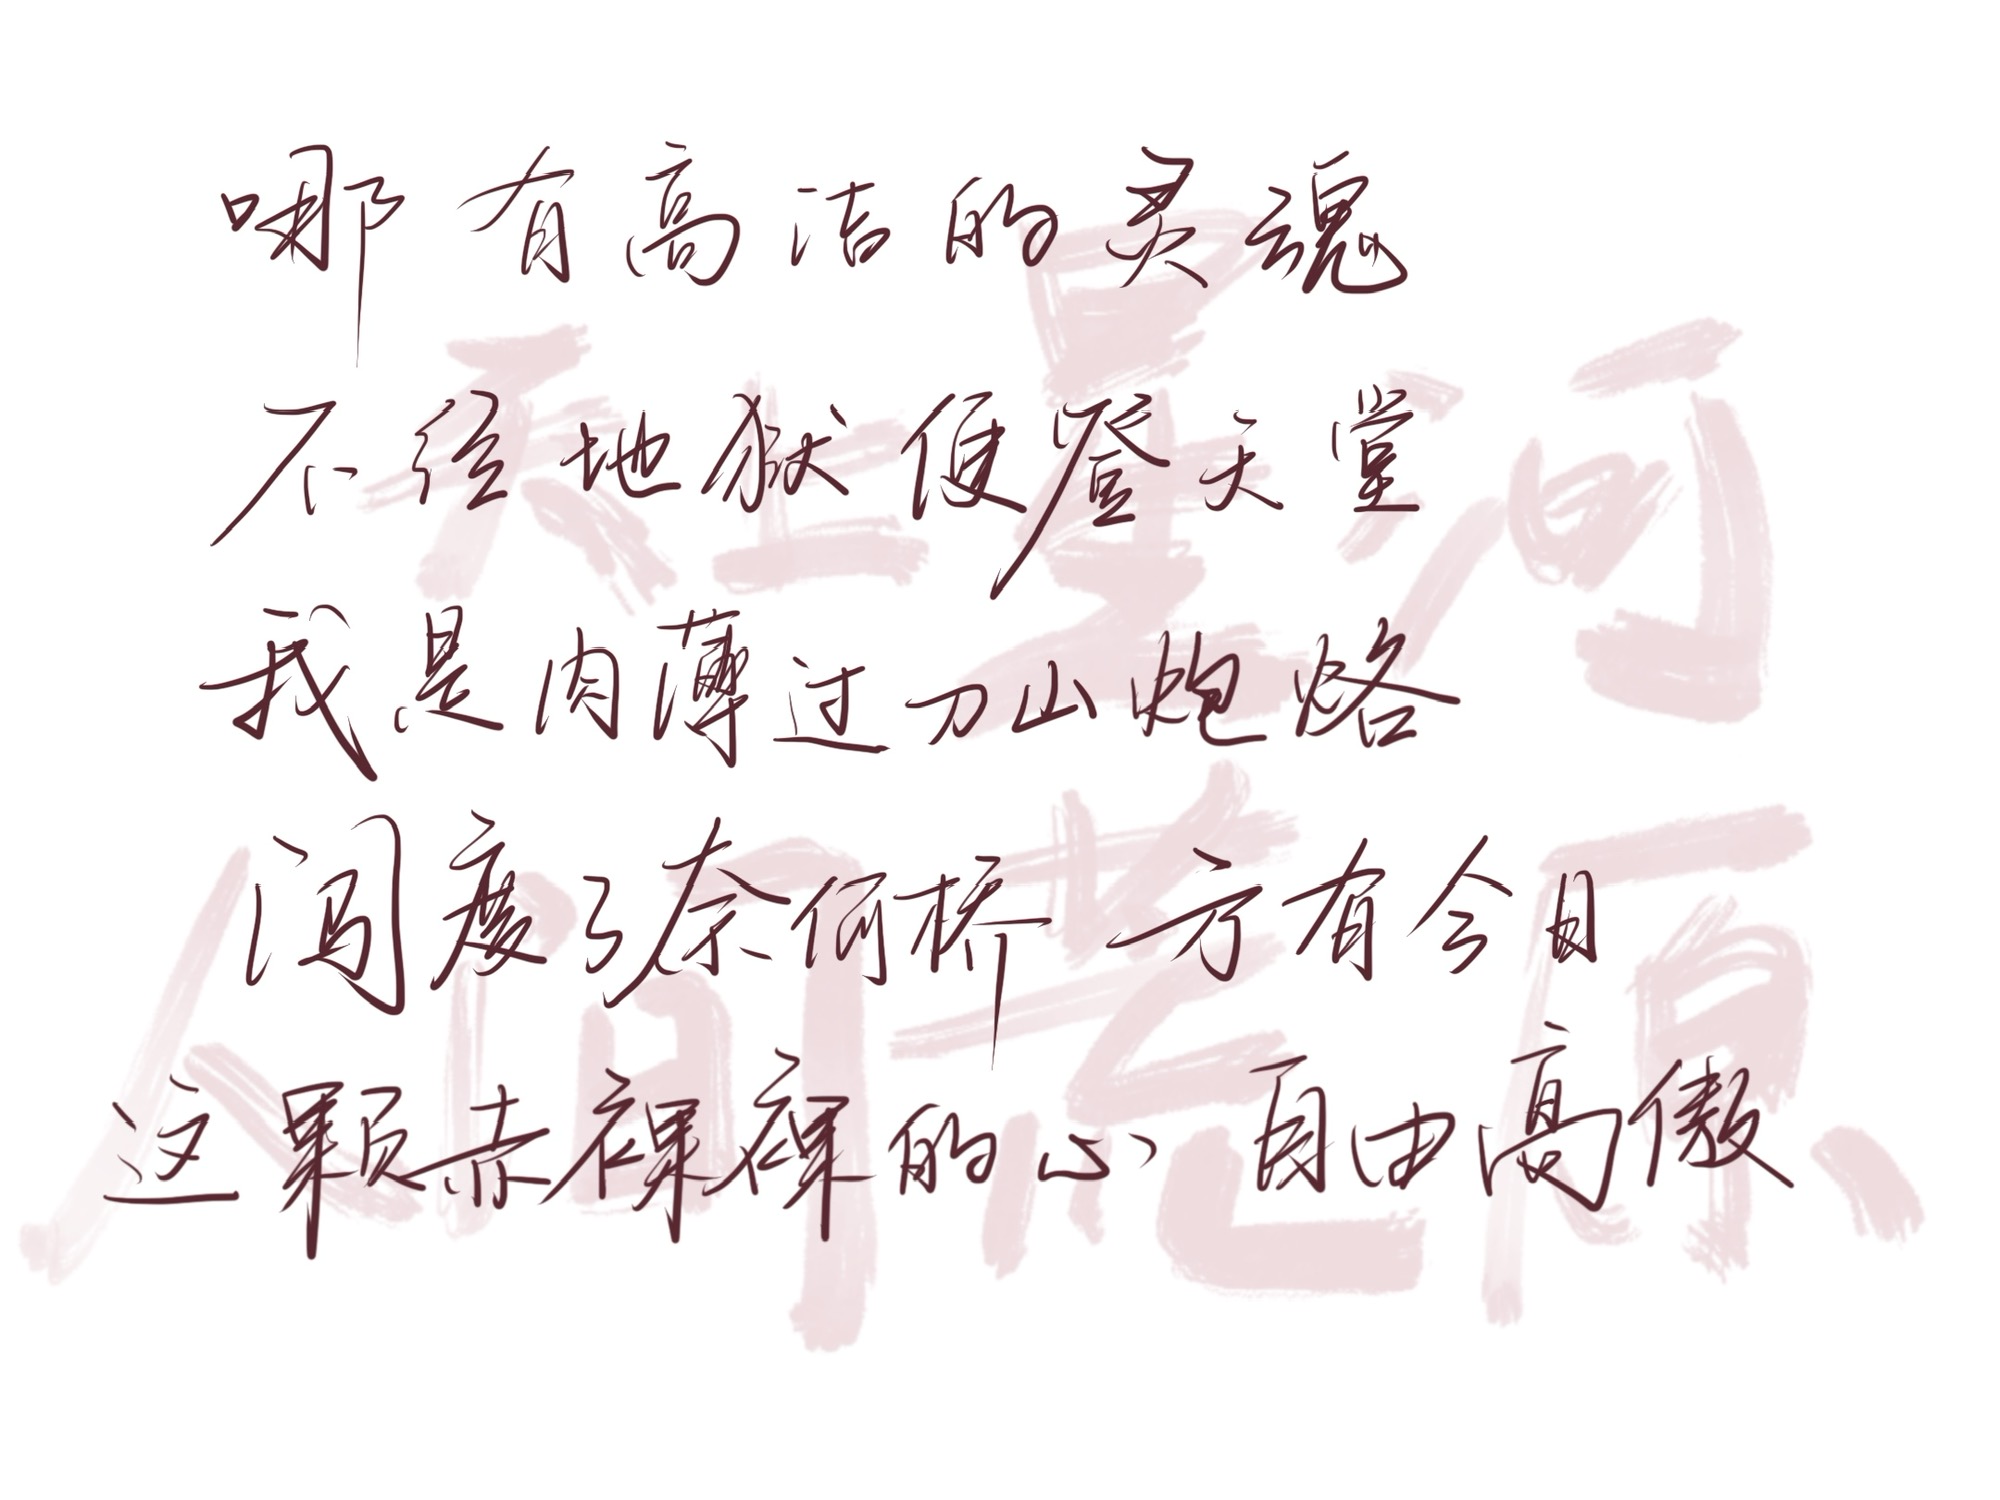 哪有高洁的灵魂
不经地狱便登天堂
我是肉薄过刀山炮烙
闯度了奈何桥 方有今日
这颗赤裸裸的心 自由高傲
天上星河
人间荒原